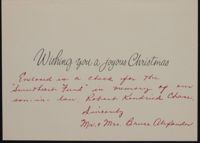 Wishing you a joyous Christmas
Enclosed is a check for the
"Sweetheart Fund" in memory of our
son-in-law Robert Kendrick Chase.
Sincerely
Mr. & Mrs. Bruce Alexander